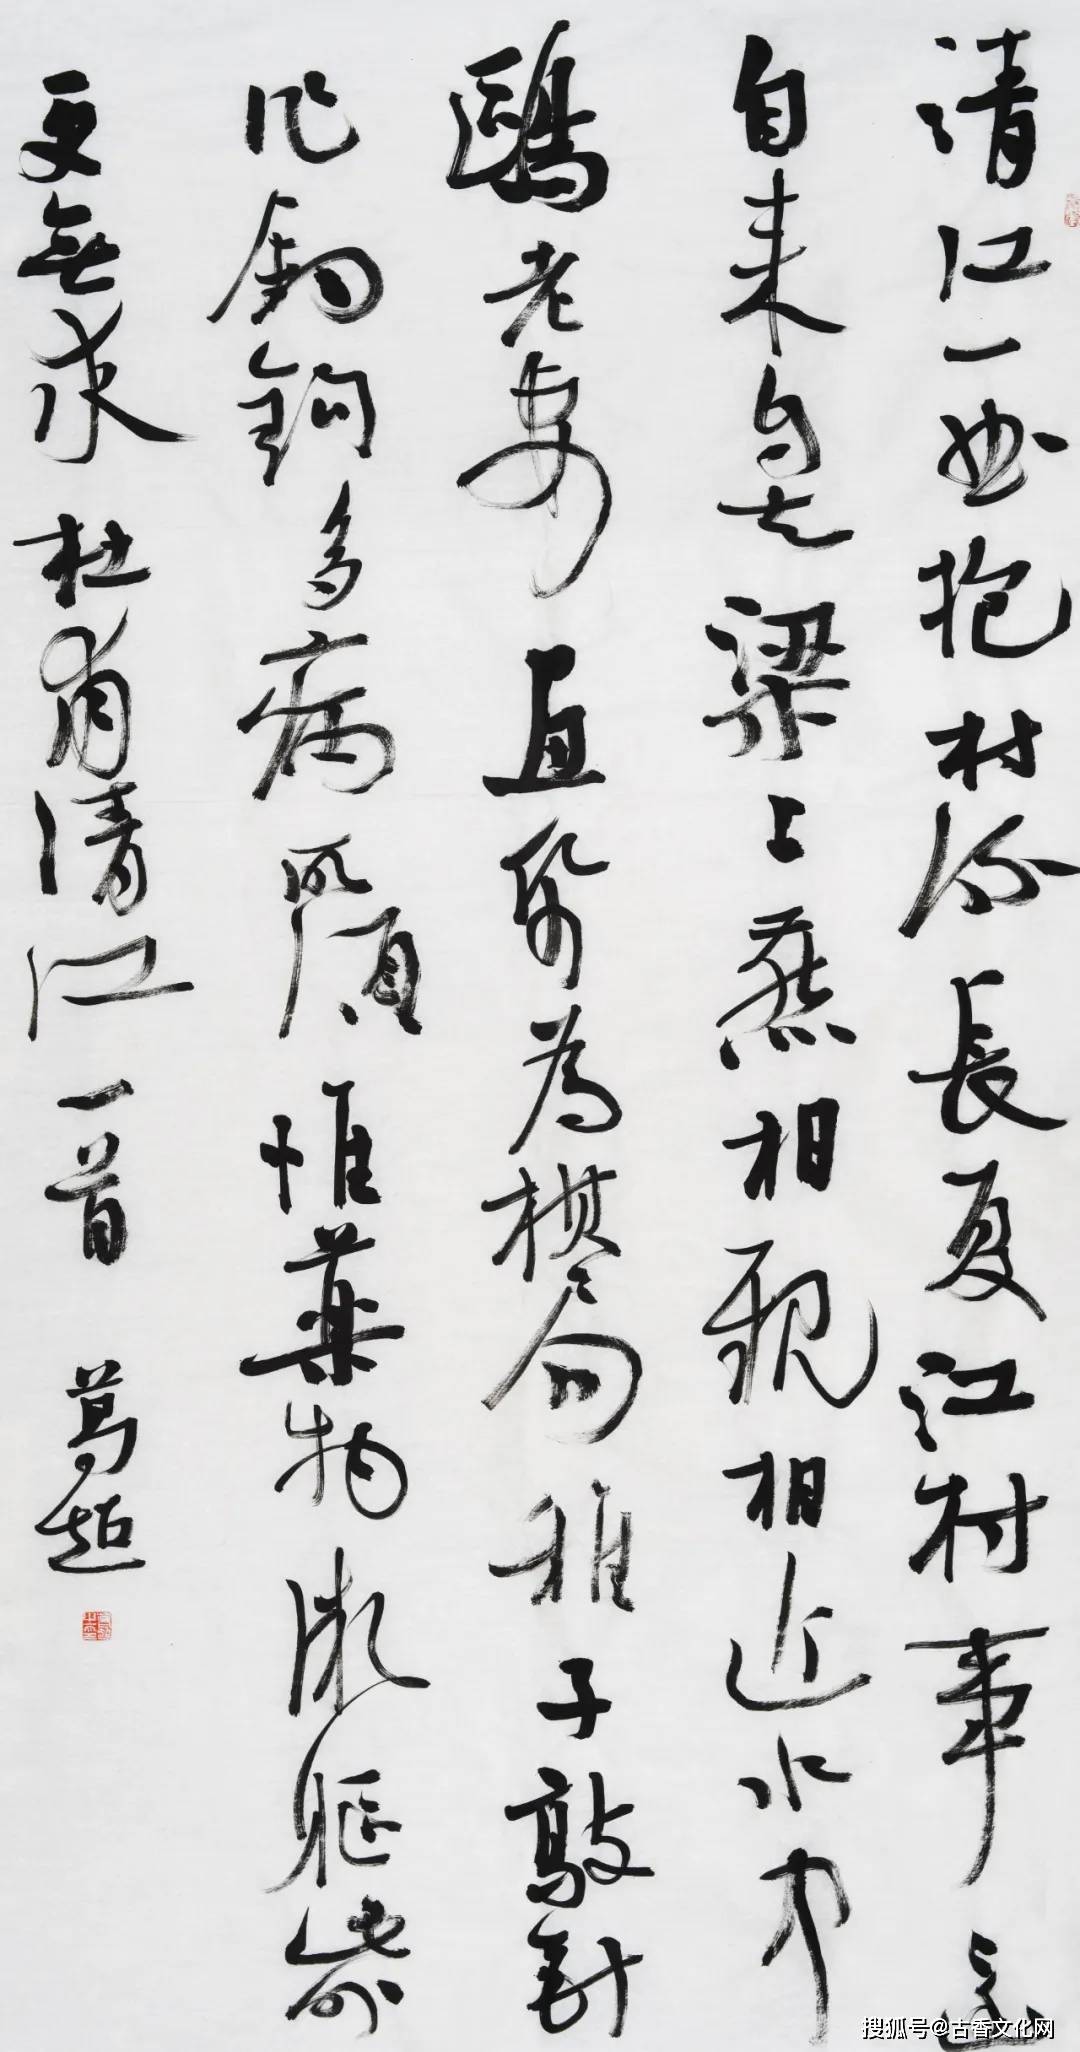 清江一曲抱村流長夏江村事幽
自来自去梁上燕相親相近水中
鷗老妻畫帋為棋局稚子敲針
作釣鉤多病所須惟藥物微軀此外
更無求 杜甫清江一首 葛超
搜狐号@古香文化网